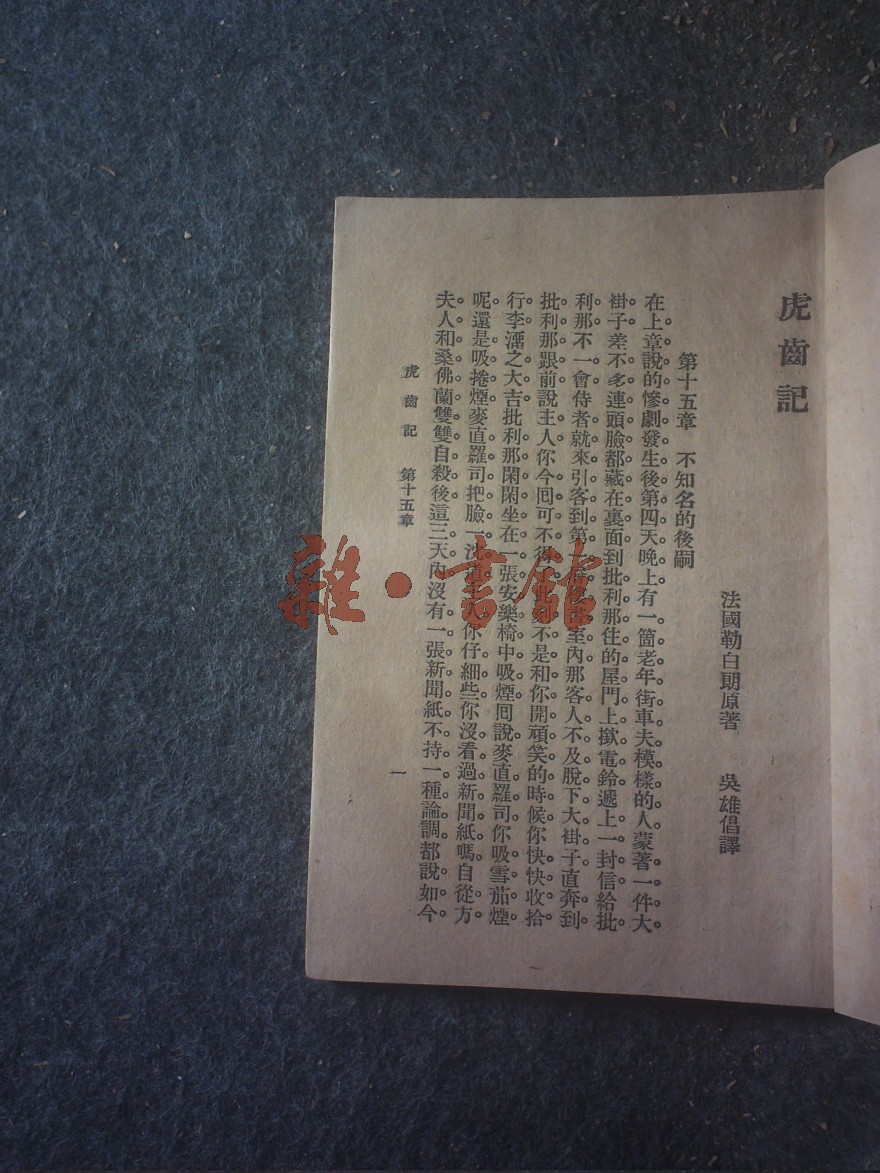 虎齒記
法國勒白朗原著 吳雄倡譯
第十五章 不知名的後嗣
在上章說的慘劇發生後第四天晚上有一箇老年街車夫模樣的人蒙著一件大
褂子差不多連頭臉都藏在裏面到批利那住的屋門上撳電鈴遞上一封信給批
利那不一會侍者就來引客到第一 室內那客人不及脫下大褂子直奔到
批利那跟前說主人你今囘可不得 此刻不是和你開頑笑的時候你快快收拾
行李溜之大吉批利那閑閑坐在一張安樂椅中吸煙囘說麥直羅司你吸雪茄煙
呢還是吸捲煙麥直羅司把臉一沈道 你仔細些你沒看過新聞紙嗎自從方
夫人和桑佛蘭雙雙自殺後這三天內沒有一張新聞紙不持一種論調都說如今
虎齒記 第十五章 一
雜·書館